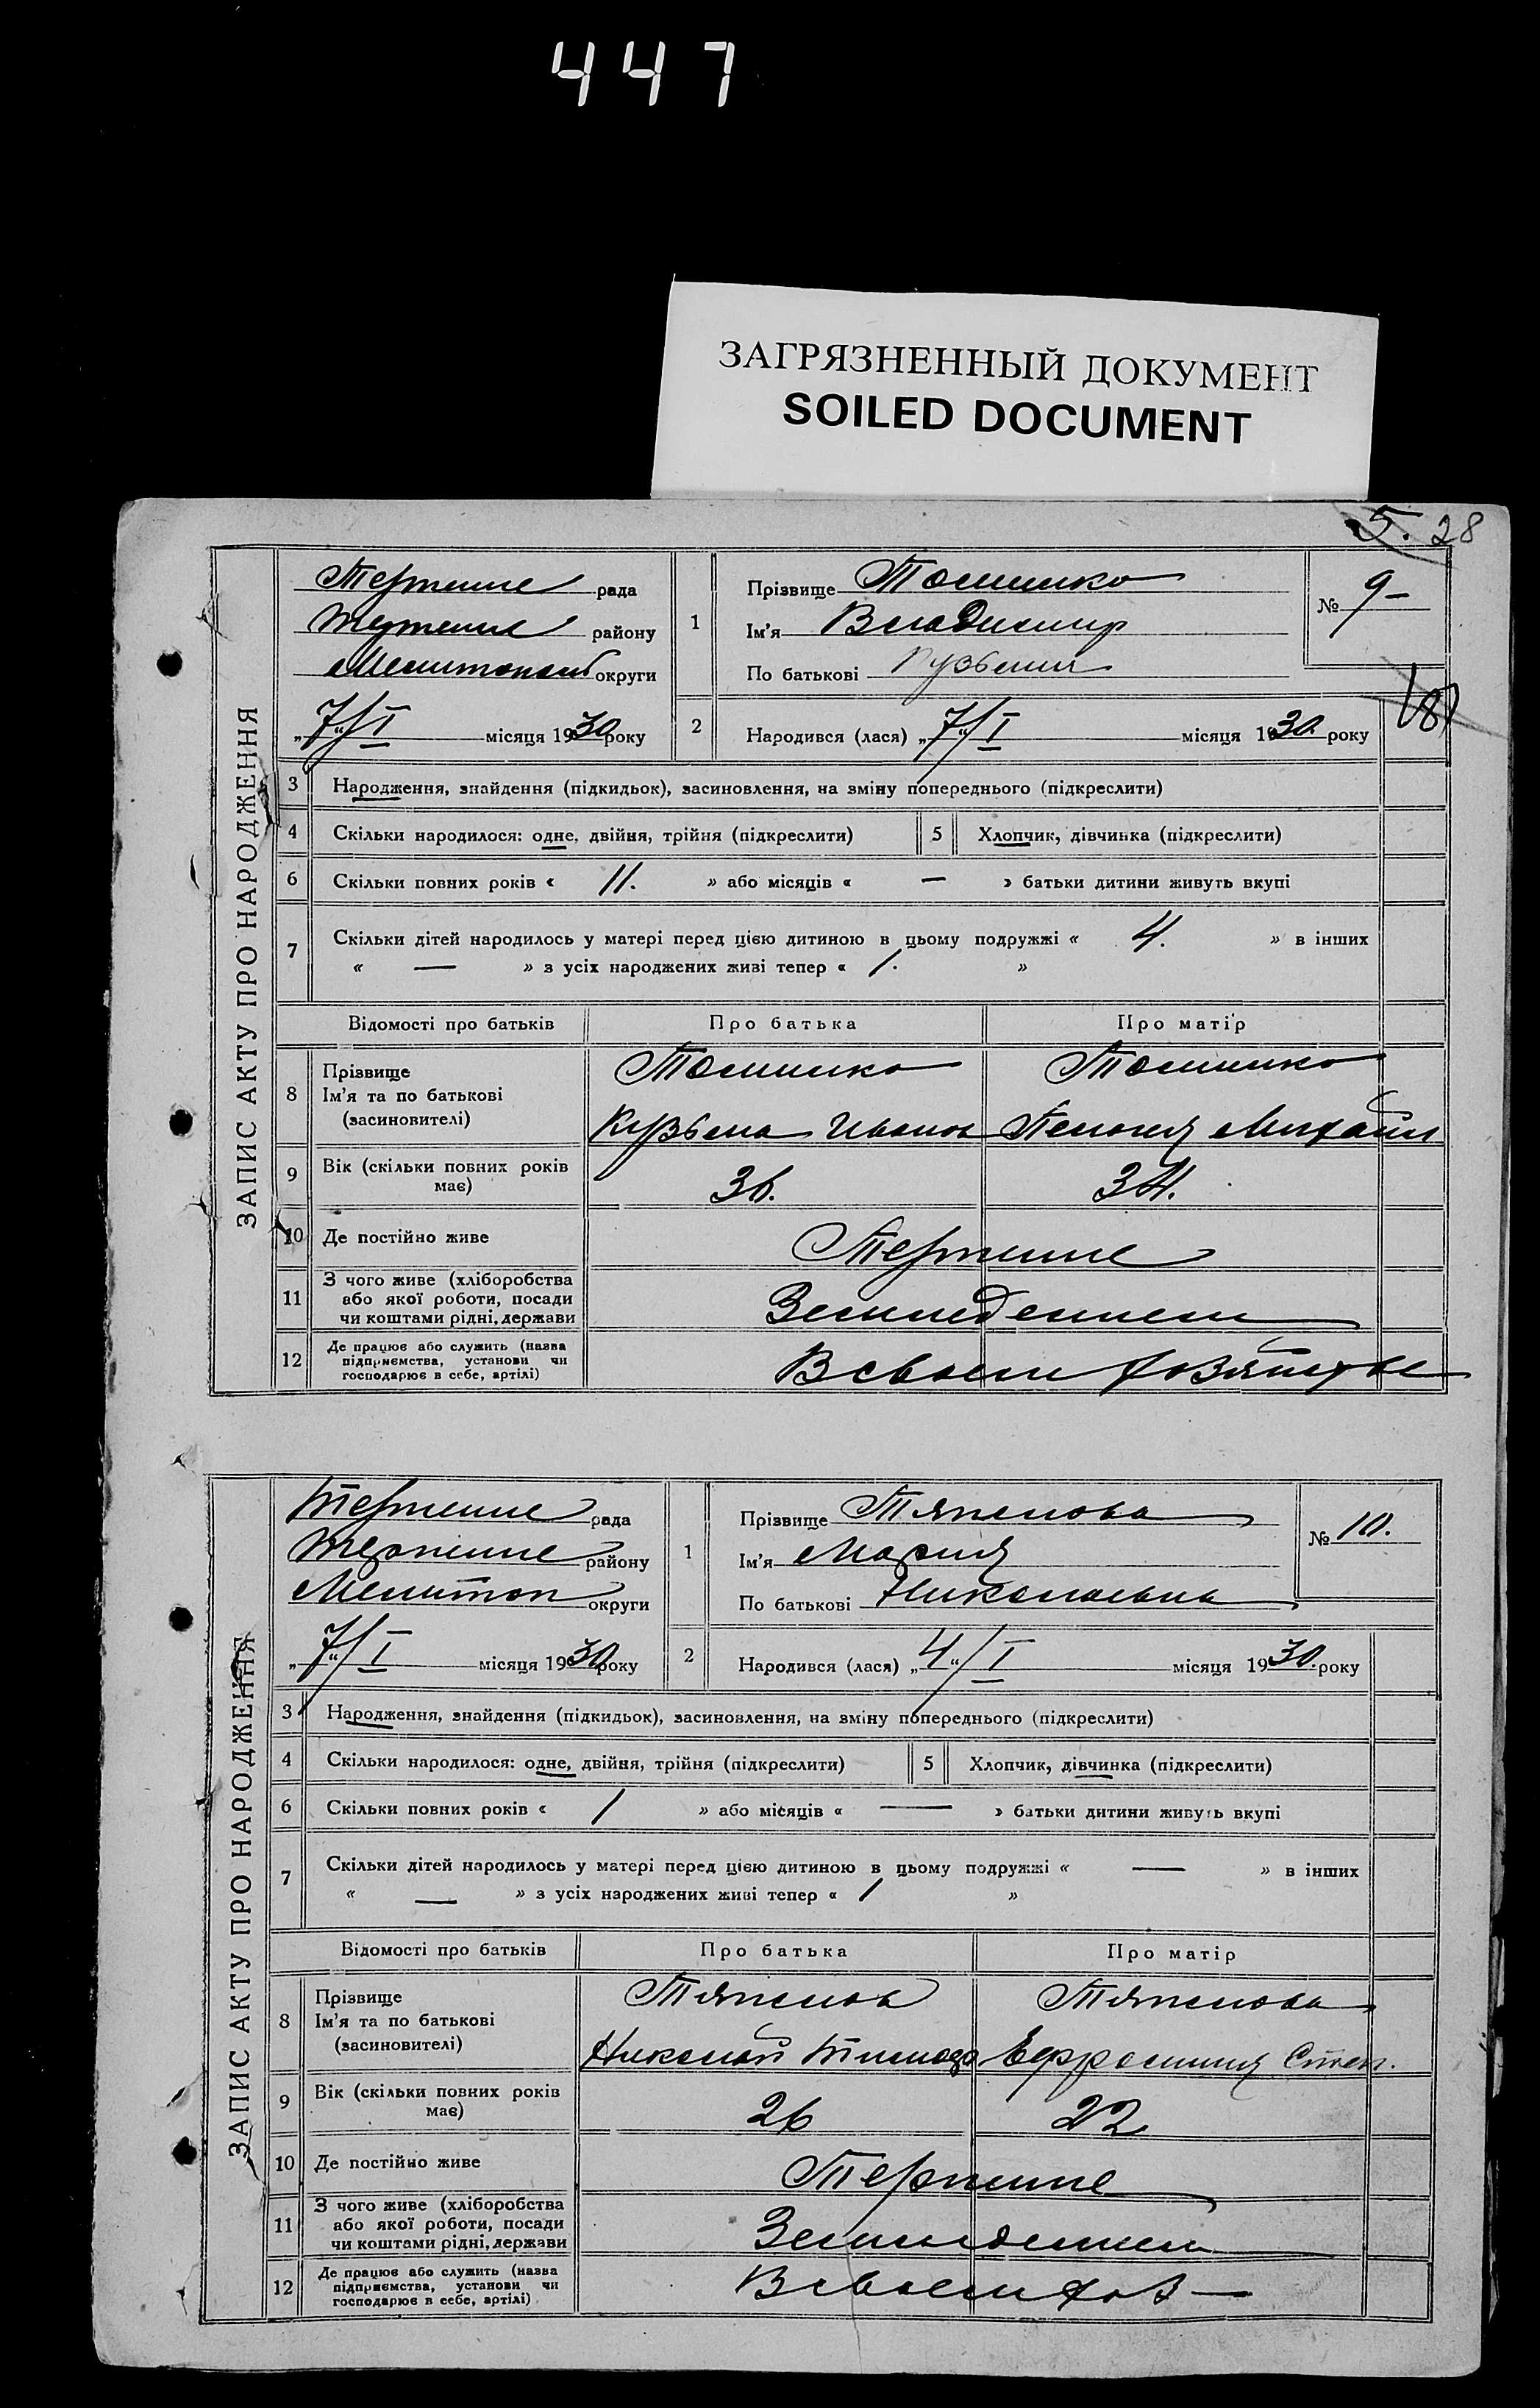 447
ЗАГРЯЗНЕННЫЙ ДОКУМЕНТ
SOILED DOCUMENT
5. 28
ЗАПИС АКТУ ПРО НАРОДЖЕННЯ
Терпение рада
Терпение району
Мелитопол округи
„7“/I місяця 1930 року
1 Прізвище Томишко
Ім'я Владимир
По батькові Кузьмич
№ 9-
2 Народився (лася) „7“/I місяця 1930. року
3 Народження, знайдення (підкидьок), засиновлення, на зміну попереднього (підкреслити)
4 Скільки народилося: одне, двійня, трійня (підкреслити) 5 Хлопчик, дівчинка (підкреслити)
6 Скільки повних років « 11. » або місяців « — » батьки дитини живуть вкупі
7 Скільки дітей народилось у матері перед цією дитиною в цьому подружжі « 4. » в інших
« — » з усіх народжених живі тепер « 1. »
Відомості про батьків Про батька Про матір
8 Прізвище
Ім'я та по батькові
(засиновителі)
Томишко Томишко
Кузьма Иванов Михайл
9 Вік (скільки повних років
має)
36. 34.
10 Де постійно живе Терпение
11 З чого живе (хліборобства
або якої роботи, посади
чи коштами рідні, держави
Земледелием
12 Де працює або служить (назва
підприємства, установи чи
господарює в себе, артілі)
В своем хозяйстве
ЗАПИС АКТУ ПРО НАРОДЖЕННЯ
Терпение рада
Терпение району
Мелитоп округи
„7“/I місяця 1930 року
1 Прізвище Тяпенова
Ім'я Мария
По батькові Николаевна
№ 10.
2 Народився (лася) „4“/I місяця 1930. року
3 Народження, знайдення (підкидьок), засиновлення, на зміну попереднього (підкреслити)
4 Скільки народилося: одне, двійня, трійня (підкреслити) 5 Хлопчик, дівчинка (підкреслити)
6 Скільки повних років « 1 » або місяців « — » батьки дитини живуть вкупі
7 Скільки дітей народилось у матері перед цією дитиною в цьому подружжі « — » в інших
« — » з усіх народжених живі тепер « 1 »
Відомості про батьків Про батька Про матір
8 Прізвище
Ім'я та по батькові
(засиновителі)
Тяпенов Тяпенова
Николай Ефросиния Степ.
9 Вік (скільки повних років
має)
26 22
10 Де постійно живе Терпение
11 З чого живе (хліборобства
або якої роботи, посади
чи коштами рідні, держави
Земледелием
12 Де працює або служить (назва
підприємства, установи чи
господарює в себе, артілі)
В своем хоз —